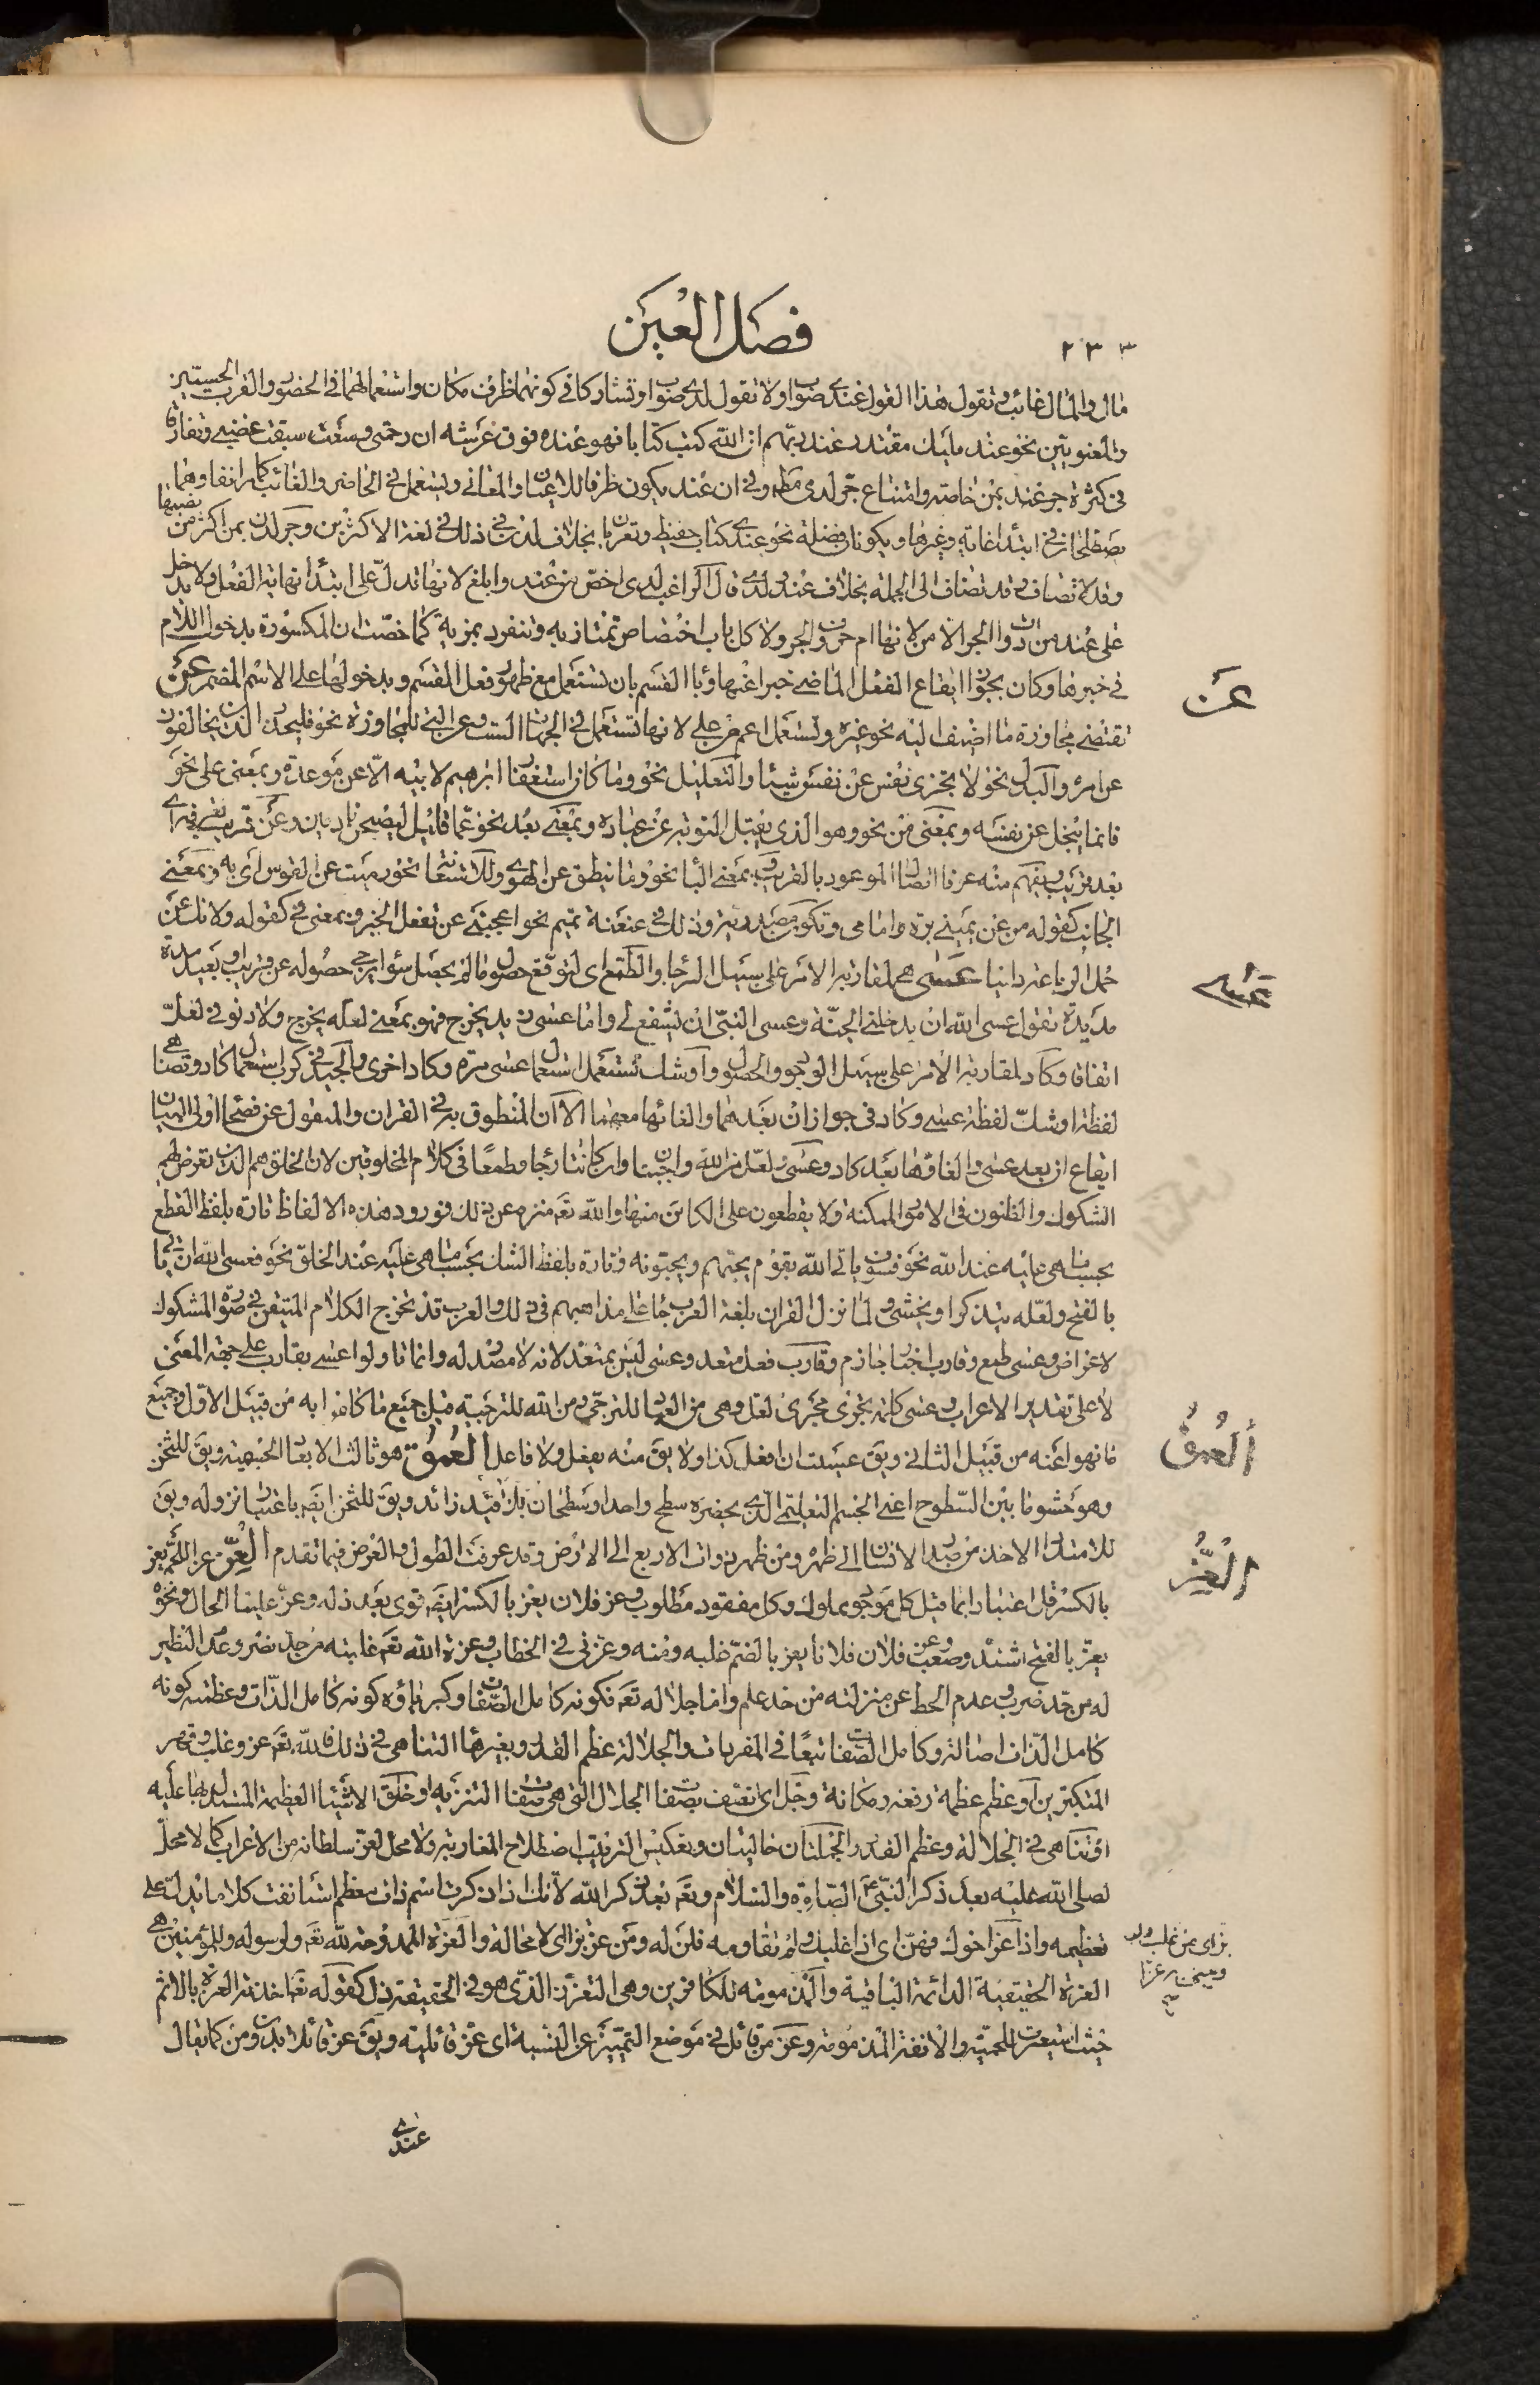 فصل العين
٢٣٣
مال والمال غائب وتقول هذا القول عندي صواب ولا تقول لدي صواب وتشاركا في كونهما ظرف مكان واستعمالهما في الحضور والقرب الحسيين
والمعنويين نحو عند مليك مقتدر عند ربهم ان الله كتب كتابا فهو عنده فوق عرشه ان رحمتي وسعت سبقت غضبي وتفارقا
في كثرة جر عند بمن خاصة وامتناع جر لدى مط وفي ان عند يكون ظرفا للاعيان والمعاني ويستعمل في الحاضر والغائب كما مر انفا وهما
يصلحان في ابتداء غاية وغيرها ويكونان فضلة نحو عندي كتاب حفيظ وتعربان بخلاف لدن في ذلك في لغة الاكثرين وجر لدن بمن اكثر من نصبها
وقد لا تضاف وقد تضاف الى الجملة بخلاف عند ولدى قال الراغب لدى اخص من عند وابلغ لانها تدل على ابتداء نهاية الفعل ولا يدخل
على عند من ادوات الجر الا من لانها ام حروف الجر ولام كل باب اختصاص تمتاز به وتنفرد بمزية كما خصت ان المكسورة بدخول اللام
في خبرها وكان بجواز ايقاع الفعل الماضي خبرا عنها وباء القسم بان تستعمل مع ظهور فعل القسم وبدخولها على الاسم المضمر عن
عن
تقتضي مجاوزة ما اضيف اليه نحو غيره وتستعمل اعم من على لانها تستعمل في الجهات الست وعن التي للمجاوزة نحو فليحذر الذين يخالفون
عن امره والبدل نحو لا تجزى نفس عن نفس شيئا والتعليل نحو وما كان استغفار ابرهيم لابيه الا عن موعدة وبمعنى على نحو
فانما يبخل عن نفسه وبمعنى من نحو وهو الذي يقبل التوبة عن عباده وبمعنى بعد نحو عما قليل ليصبحن نادمين وعن قريب
بعد قريب ويفهم منه عرفا اتصال الموعود بالقرب وبمعنى الباء نحو وما ينطق عن الهوى وللاستعانة نحو رميت عن القوس اي به وبمعنى
الجانب كقوله من عن يميني مرة وامامي وتكون مصدرية وذلك في عنعنة تميم نحو اعجبني عن تفعل الخير وبمعنى في كقوله ولا تك عن
حمل الرباعة وانيا عسى هي لمقاربة الامر على سبيل الرجاء والطمع اي لتوقع حصول ما لم يحصل سواء يرجى حصوله عن قريب او بعيد مدة
عسى
مديدة تقول عسى الله ان يدخلني الجنة وعسى النبي ان يشفع لي واما عسى زيد يخرج فهو بمعنى لعله يخرج ولا دنو في لعل
اتفاقا وكاد لمقاربة الامر على سبيل الوجود والحصول واوشك تستعمل استعمال عسى مرة وكاد اخرى والجيد في كرب استعمال كاد وتصنا هي
لفظة اوشك لفظة عسى وكاد في جواز ان بعدهما والغائها معهما الا ان المنطوق به في القران والمنقول عن فصحاء اولى البيان
ايقاع ان بعد عسى والغاؤها بعد كاد وعسى ولعل من الله واجبتان وان كانتا رجاء وطمعا في كلام المخلوقين لان الخلق هم الذين تعرض لهم
الشكوك والظنون في الامور الممكنة ولا يقطعون على الكائن منها والله تعه منزه عن ذلك فورود هذه الالفاظ تارة بلفظ القطع
بحسب ما هي عليه عند الله نحو فسوف ياتي الله بقوم يحبهم ويحبونه وتارة بلفظ الشك بحسب ما هي عليه عند الخلق نحو فعسى الله ان ياتي
بالفتح ولعله يتذكر او يخشى ولما نزل القران بلغة العرب جاء على مذاهبهم في ذلك والعرب قد تخرج الكلام المتيقن في صورة المشكوك
لاغراض وعسى طمع وقارب اخبار جازم وقارب فعل متعد وعسى ليس بمتعد لانه لا مصدر له وانما قالوا عسى بقارب على جهة المعنى
لا على تقدير الاعراب وعسى كلمة تجري مجرى لعل وهي من العباد للترجي ومن الله للترجية قيل جميع ما كان به من قبيل الاول وجميع
ما نهوا عنه من قبيل الثاني ويق عسيت ان افعل كذا ولا يق منه يفعل ولا فاعل العمق هو ثالث الابعاد الجسمية ويق للثخن
العمق
وهو حشو ما بين السطوح اعني الجسم التعليمي الذي يحضره سطح واحد او سطحان بلا قيد زائد ويق للثخن ايضه باعتبار نزوله ويق
للامتداد الاخذ من صدر الانسان الى ظهره ومن ظهر ذوات الاربع الى الارض وقد عرفت الطول والعرض فيما تقدم العز عز اللحم يعز
العز
بالكسر قل اعتبارا بما قيل كل موجود مملوك وكل مفقود مطلوب وعز فلان يعز بالكسر ايضه قوي بعد ذله وعز علينا الحال ونحوه
يعز بالفتح اشتد وصعب وعز فلان فلانا يعز بالضم غلبه ومنه وعزني في الخطاب وعزة الله تعه غلبته من حد نصر وعدم النظير
له من حد ضرب وعدم الحط عن منزلته من حد علم واما جلاله تعه فكونه كامل الصفات وكبرياؤه كونه كامل الذات وعظمته كونه
كامل الذات اصالة وكامل الصفات تبعا في المفردات والجلالة عظم القدر وبغيرها التناهي في ذلك فالله تعه عز وغلب وقهر
المتكبرين او عظم عظمة رفعة ومكانة وجل اي تصف بصفات الجلال التي هي صفات التنزيه او خلق الاشياء العظيمة المستدل بها عليه
او تناهى في الجلالة وعظم القدر والجملتان حاليتان وبعكس الترتيب اصطلاح المغاربة ولا محل لعز سلطانه من الاعراب كما لا محل
لصلى الله عليه بعد ذكر النبي عم الصلوة والسلام وتعه بعد ذكر الله لانك اذا ذكرت اسم ذات معظم استانفت كلاما يدل على
تعظيمه واذا عز اخوك فهن اي اذا غلبك ولم تقاومه فلن له ومن عز بز الى لا محالة والعزة الممدوحة لله تعه ولرسوله وللمؤمنين هي
بز اي من غلب ولب
العزة الحقيقية الدائمة الباقية والمذمومة للكافرين وهي التعزز الذي هو في الحقيقة ذل كقوله تعه اخذته العزة بالاثم
حيث استعيرت للحمية والانفة المذمومة وعز من قائل في موضع التمييز عن النسبة اي عز قائليته ويق عز قائلا بدون من كما يقال
عندي